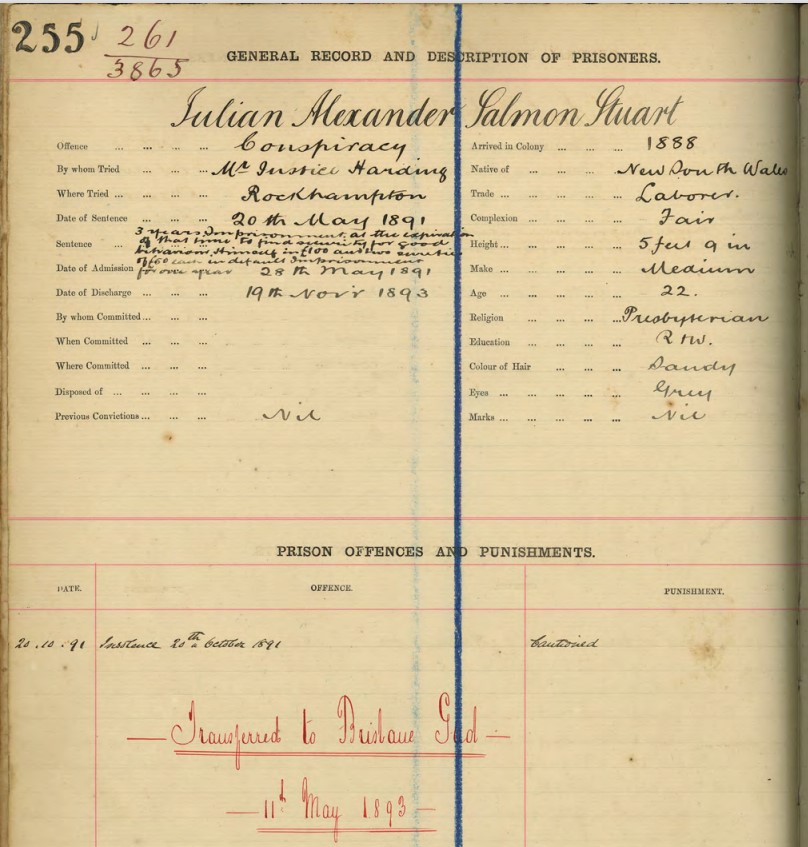 255 261
3865
GENERAL RECORD AND DESCRIPTION OF PRISONERS.
Julian Alexander Salmon Stuart
Offence ... ... ... ... Conspiracy
By whom Tried ... ... ... Mr Justice Harding
Where Tried ... ... ... ... Rockhampton
Date of Sentence ... ... ... 20th May 1891
Sentence ... ... ... 3 years Imprisonment at the expiration
of that time to find security for good
behaviour Himself in £100 and two sureties
of £60 each in default Imprisonment
for one year
Date of Admission 28th May 1891
Date of Discharge ... ... 19th Novr 1893
By whom Committed ... ... ...
When Committed ... ... ...
Where Committed ... ... ...
Disposed of ... ... ... ...
Previous Convictions ... ... ... Nil
Arrived in Colony ... ... ... 1888
Native of ... ... ... New South Wales
Trade ... ... ... ... Laborer.
Complexion ... ... ... Fair
Height ... ... ... ... 5 feet 9 in
Make ... ... ... ... ... Medium
Age ... ... ... ... ... 22.
Religion ... ... ... ... Presbyterian
Education ... ... ... ... R & W.
Colour of Hair ... ... ... Sandy
Eyes ... ... ... ... ... Grey
Marks ... ... ... ... ... Nil
PRISON OFFENCES AND PUNISHMENTS.
DATE. OFFENCE. PUNISHMENT.
20.10.91 Insolence 20th October 1891 Cautioned
Transferred to Brisbane Gaol
11th May 1893